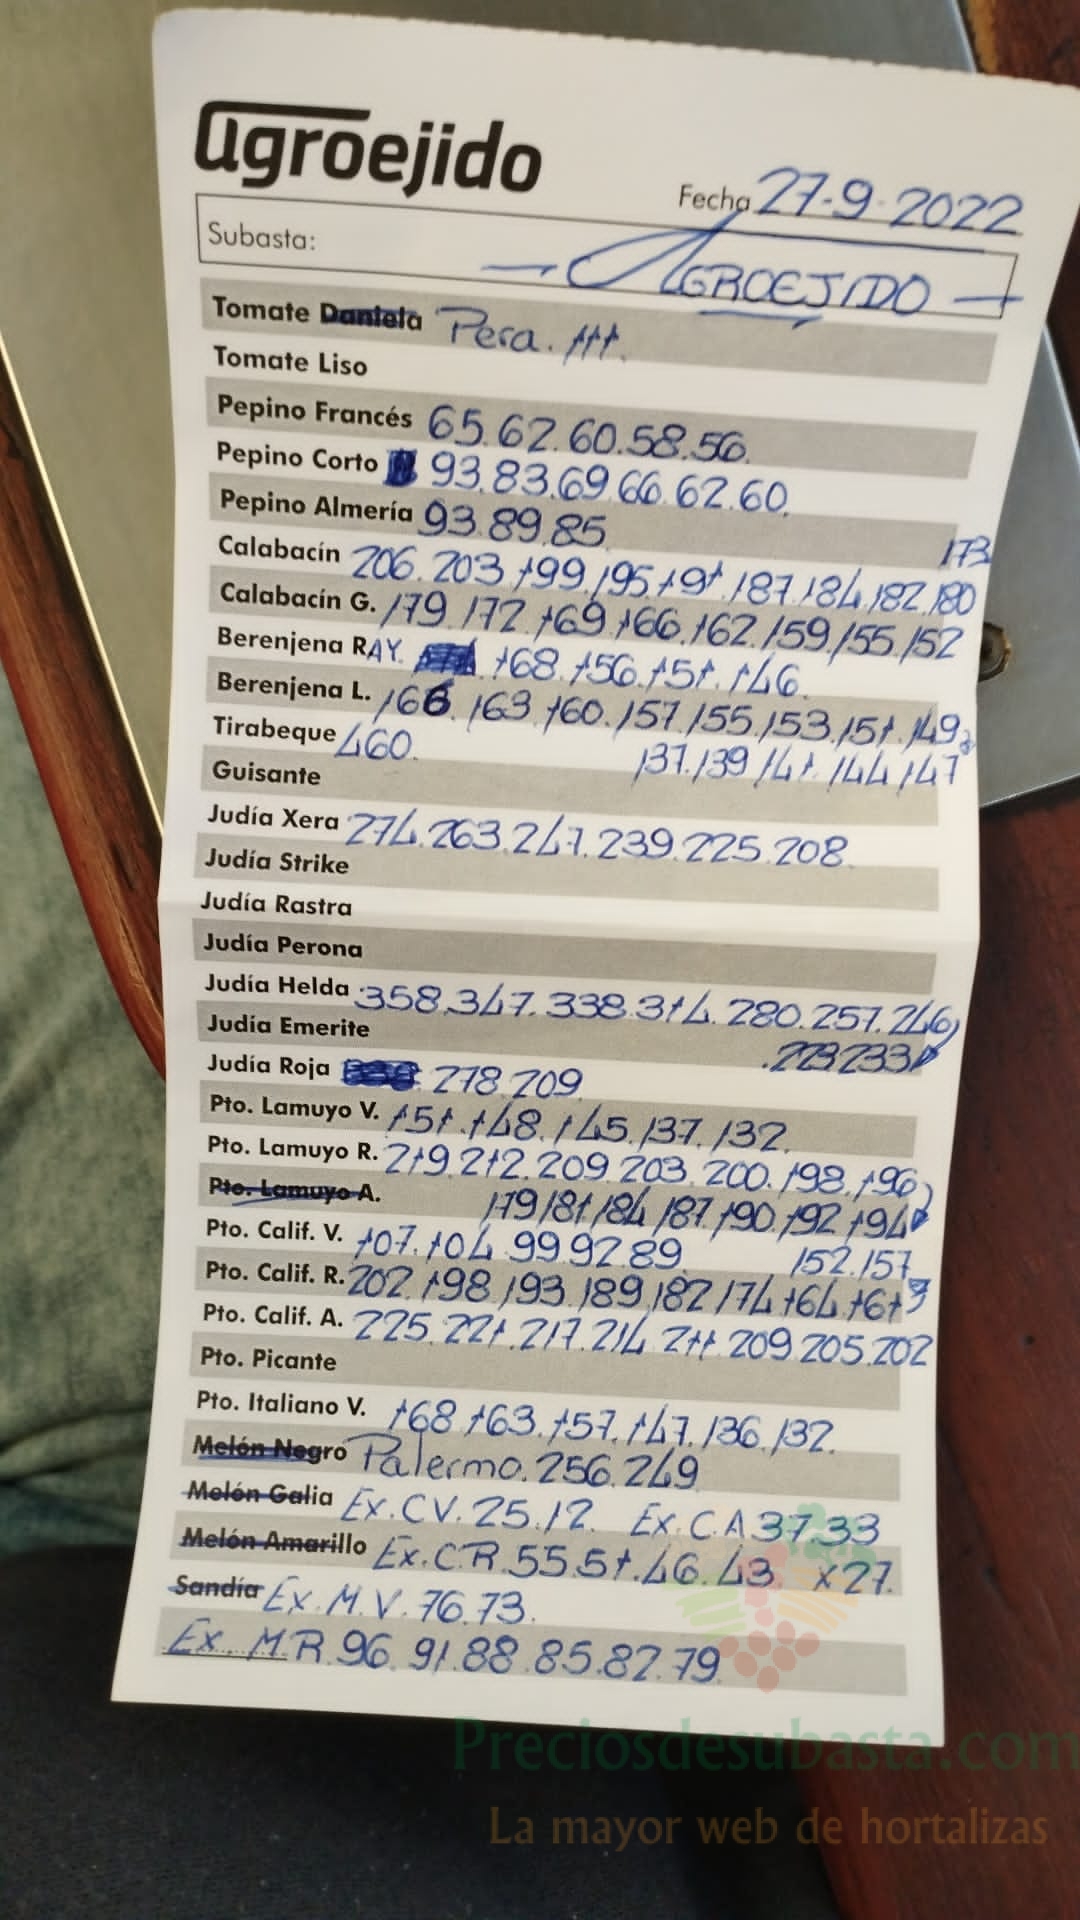 agroejido
Fecha 27-9-2022
Subasta: AGROEJIDO
Tomate Daniela Pera. 111.
Tomate Liso
Pepino Francés 65.62.60.58.56.
Pepino Corto 93.83.69.66.62.60.
Pepino Almería 93.89.85
173
Calabacín 206.203.199.195.191.187.184.182.180
Calabacín G. 179.172.169.166.162.159.155.152
Berenjena RAY. 168.156.151.146.
Berenjena L. 166.163.160.157.155.153.151.149
Tirabeque 460. 137.139.141.144.147
Guisante
Judía Xera 274.263.247.239.225.208.
Judía Strike
Judía Rastra
Judía Perona
Judía Helda 358.347.338.314.280.257.246
Judía Emerite .223 233
Judía Roja 278.209
Pto. Lamuyo V. 151.148.145.137.132.
Pto. Lamuyo R. 219.212.209.203.200.198.196
Pto. Lamuyo A. 179.181.184.187.190.192.194
Pto. Calif. V. 107.104.99.92.89 152.157
Pto. Calif. R. 202.198.193.189.182.174.164.161
Pto. Calif. A. 225.221.217.214.211.209.205.202
Pto. Picante
Pto. Italiano V. 168.163.157.147.136.132.
Melón Negro Palermo.256.249
Melón Galia Ex.CV.25.12. Ex.CA 37.33
Melón Amarillo Ex.CR.55.51.46.43 x27.
Sandía Ex.M.V.76.73.
Ex. MR.96.91.88.85.82.79
Preciosdesubasta.com
La mayor web de hortalizas